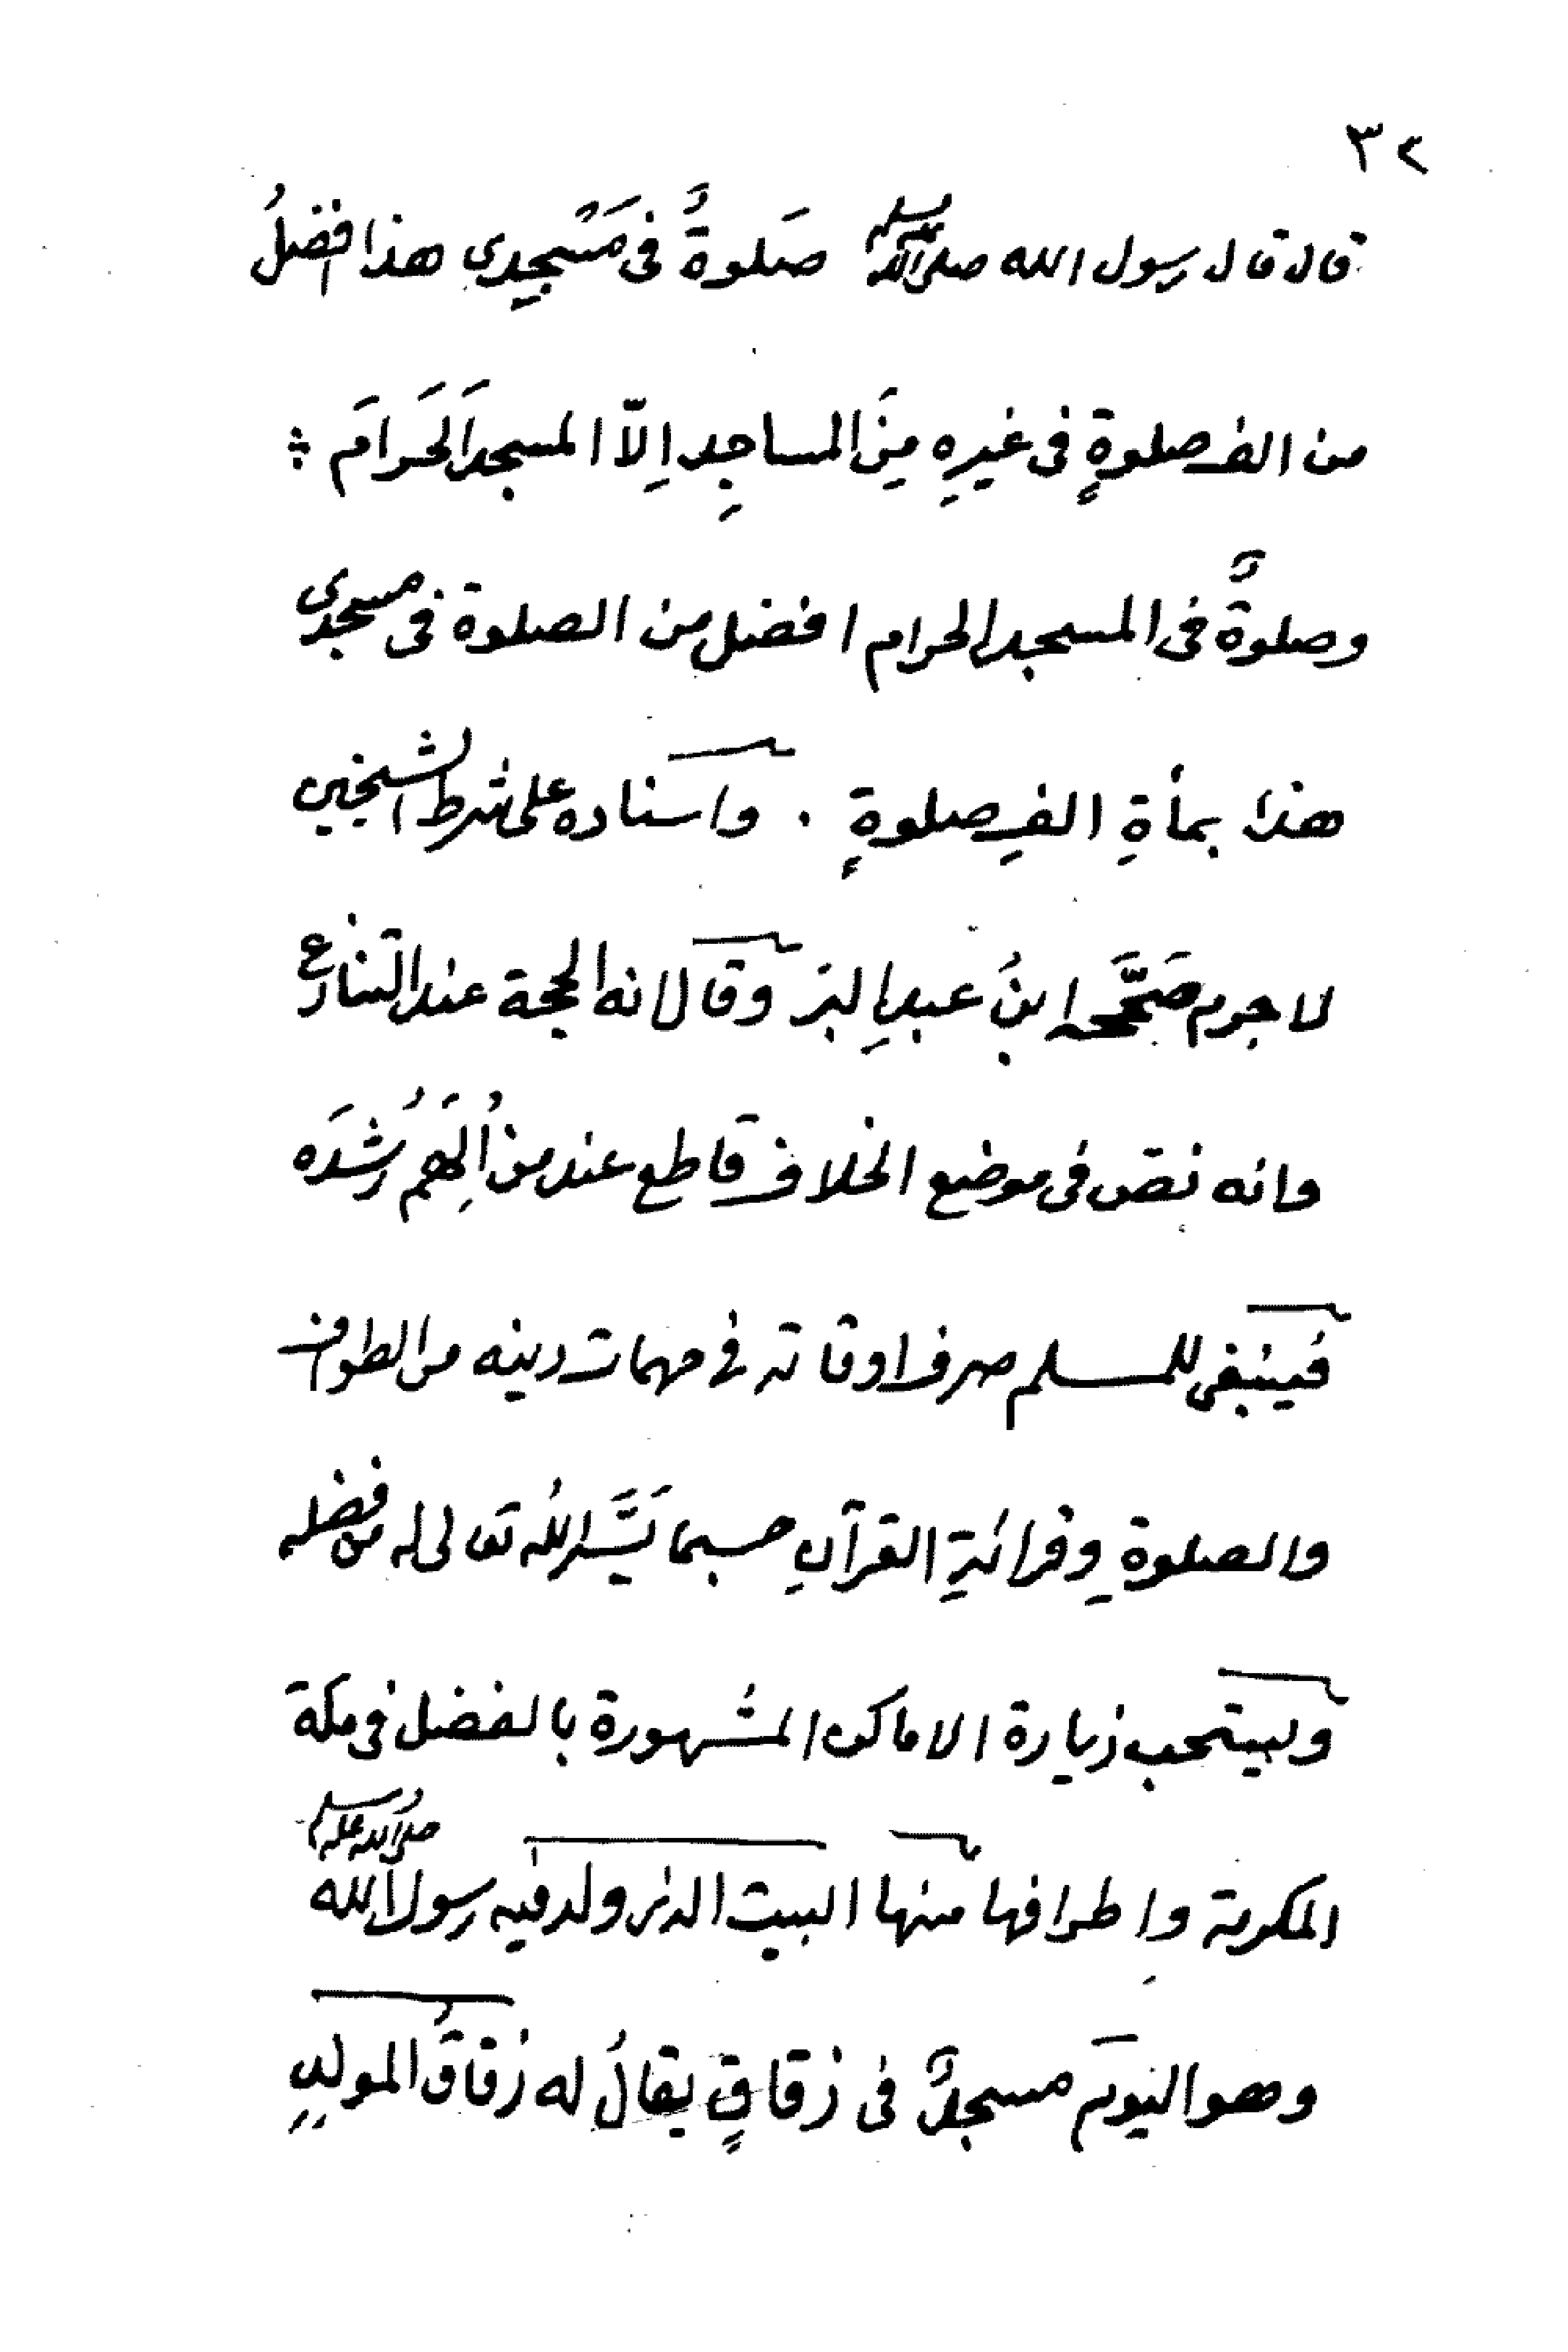 ٣٢
قال قال رسول الله صلى الله عليه وسلم صَلوةٌ فى مَسْجِدِى هذا افضلُ
من الف صلوةٍ فى غيرِهِ مِنَ المساجِدِ اِلّا المسجدَ الحَرامَ ؞
وصلوةٌ فى المسجد الحرام افضل من الصلوة فى مسجدى
هذا بمأةِ الفِ صلوةٍ . واسناده على شرط الشيخين
لا جرم صَحَّحه ابنُ عبدِ البرّ وقال انه الحجة عند التنازع
وانه نصّ فى موضع الخلاف قاطع عند من اُلهِمَ رُشدَه
فينبغى للمسلم صرف اوقاته فى مهمات دينه من الطواف
والصلوةِ وقرائةِ القرآنِ حسبما يَسَّر اللهُ تعالى له من فضله
ويستحب زيارة الاماكن المشهورة بالفضل فى مكة
المكرمة واطرافها منها البيت الذى ولد فيه رسول الله صلى الله عليه وسلم
وهو اليومَ مسجدٌ فى زقاقٍ يقالُ له زقاقُ المولدِ